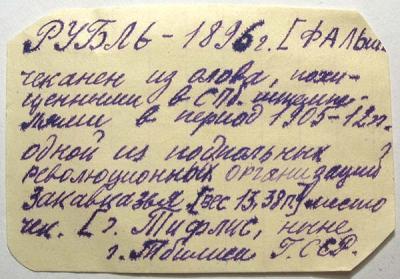 РУБЛЬ - 1896 г. [ФАЛЬш.
чеканен из олова, похи-
щенными в СПб. штемпе-
лями в период 1905-12 гг.
одной из подпольных
революционных организаций
Закавказья [вес 13,38 г.] место
чек. [г. Тифлис, ныне
г. Тбилиси Г.ССР.